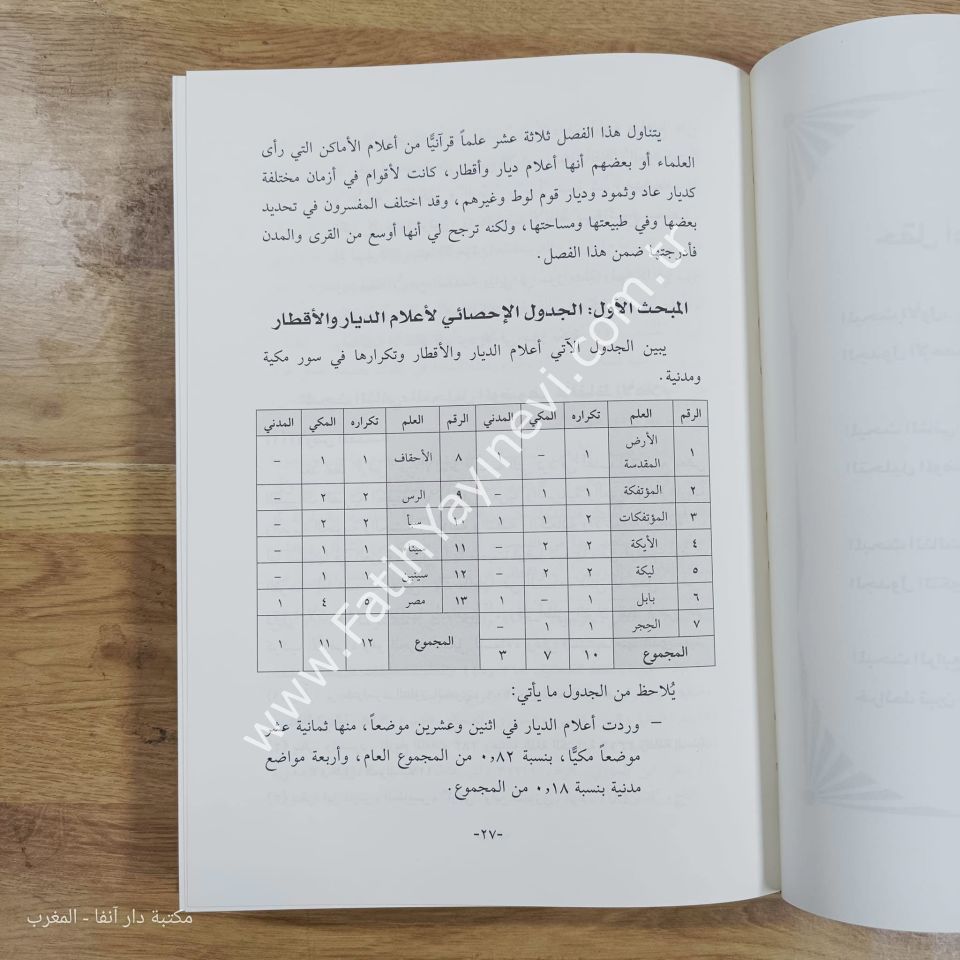 يتناول هذا الفصل ثلاثة عشر علماً قرآنيًّا من أعلام الأماكن التي رأى
العلماء أو بعضهم أنها أعلام ديار وأقطار، كانت لأقوام في أزمان مختلفة
كديار عاد وثمود وديار قوم لوط وغيرهم، وقد اختلف المفسرون في تحديد
بعضها وفي طبيعتها ومساحتها، ولكنه ترجح لي أنها أوسع من القرى والمدن
فأدرجتها ضمن هذا الفصل.
المبحث الأول: الجدول الإحصائي لأعلام الديار والأقطار
يبين الجدول الآتي أعلام الديار والأقطار وتكرارها في سور مكية
ومدنية.
الرقم العلم تكراره المكي المدني الرقم العلم تكراره المكي المدني
١ الأرض المقدسة ١ – ١ ٨ الأحقاف ١ ١ –
٢ المؤتفكة ١ ١ – ٩ الرس ٢ ٢ –
٣ المؤتفكات ٢ ١ ١ ١٠ سبأ ٢ ٢ –
٤ الأيكة ٢ ٢ – ١١ سيناء ١ ١ –
٥ ليكة ٢ ٢ – ١٢ سينين ١ ١ –
٦ بابل ١ – ١ ١٣ مصر ٥ ٤ ١
٧ الحِجر ١ ١ – المجموع ١٢ ١١ ١
المجموع ١٠ ٧ ٣
يُلاحظ من الجدول ما يأتي:
– وردت أعلام الديار في اثنين وعشرين موضعاً، منها ثمانية عشر
موضعاً مكيًّا، بنسبة ٠,٨٢ من المجموع العام، وأربعة مواضع
مدنية بنسبة ٠,١٨ من المجموع.
-٢٧-
www.FatihYayinevi.com.tr
مكتبة دار آنفا - المغرب